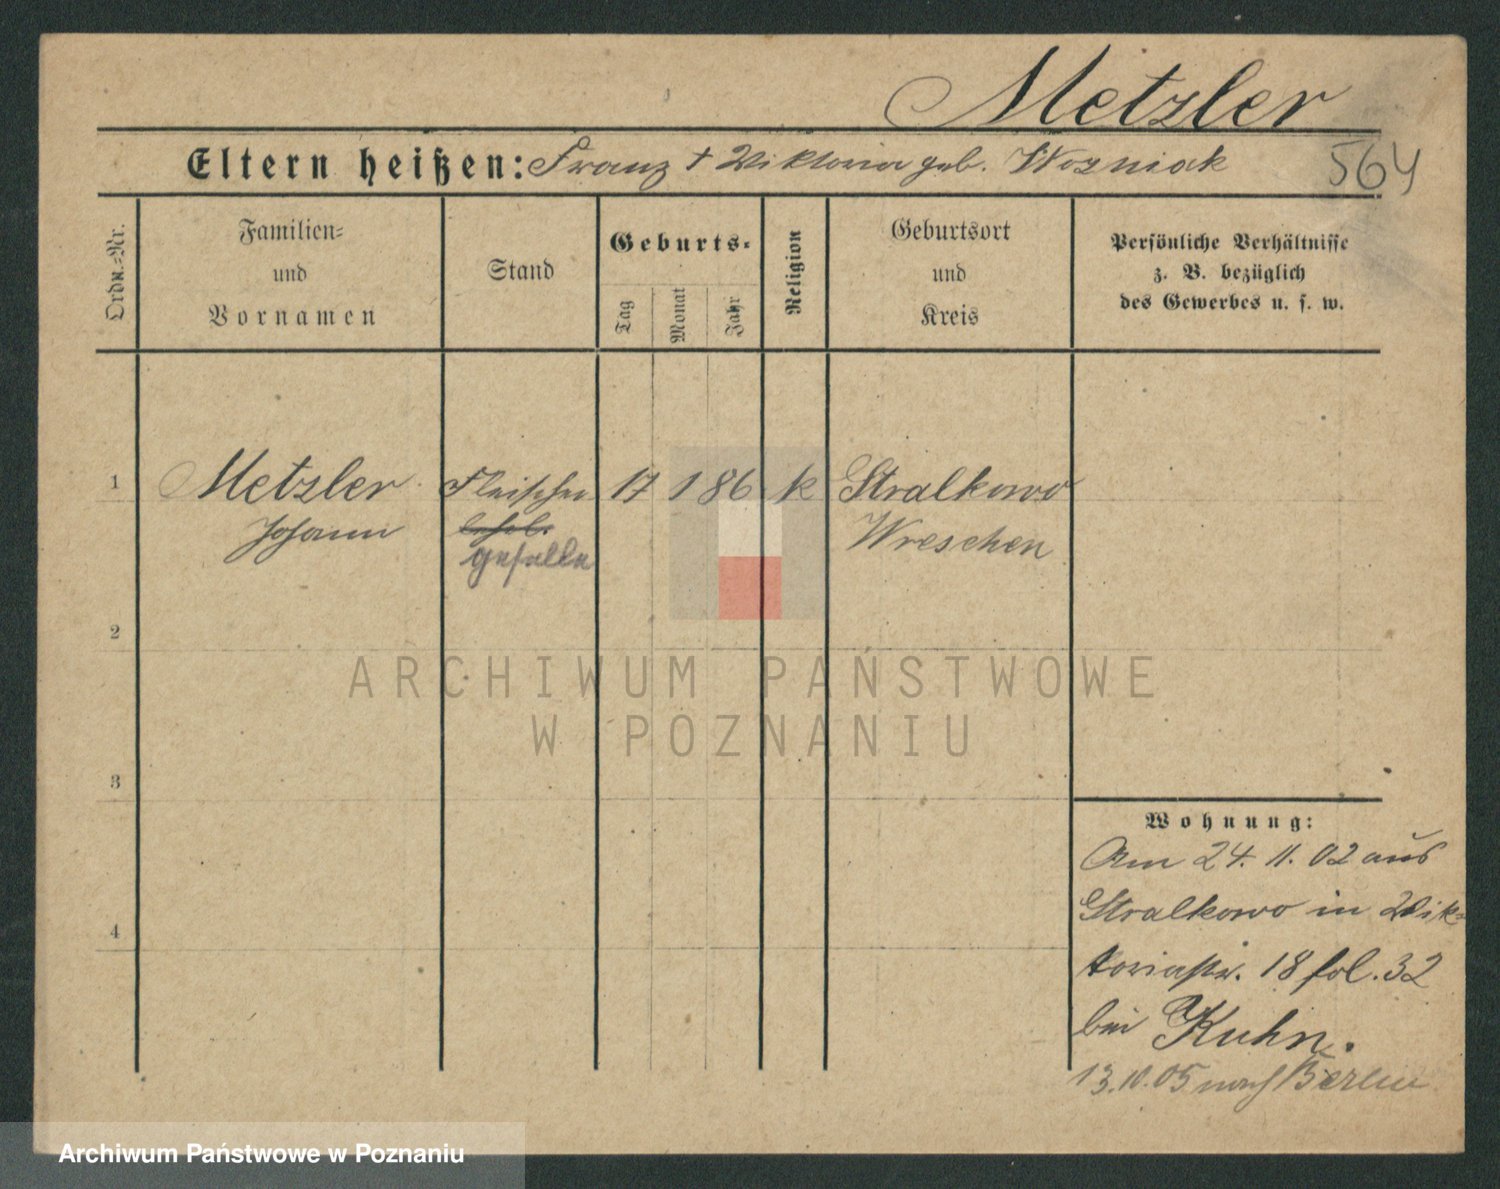 Metzler
Eltern heißen: Franz + Wiktoria geb. Wozniak
564
Ordn.-Nr.
Familien-
und
Vornamen
Stand
Geburts-
Tag
Monat
Jahr
Religion
Geburtsort
und
Kreis
Persönliche Verhältnisse
z. B. bezüglich
des Gewerbes u. s. w.
1
Metzler
Johann
Fleischer
geselle
17
1
86
k
Stralkowo
Wreschen
2
3
4
Wohnung:
Am 24. 11. 02 aus
Stralkowo in Wik-
toriastr. 18 fol. 32
bei Kuhn.
13.10.05 nach Berlin
ARCHIWUM PAŃSTWOWE
W POZNANIU
Archiwum Państwowe w Poznaniu